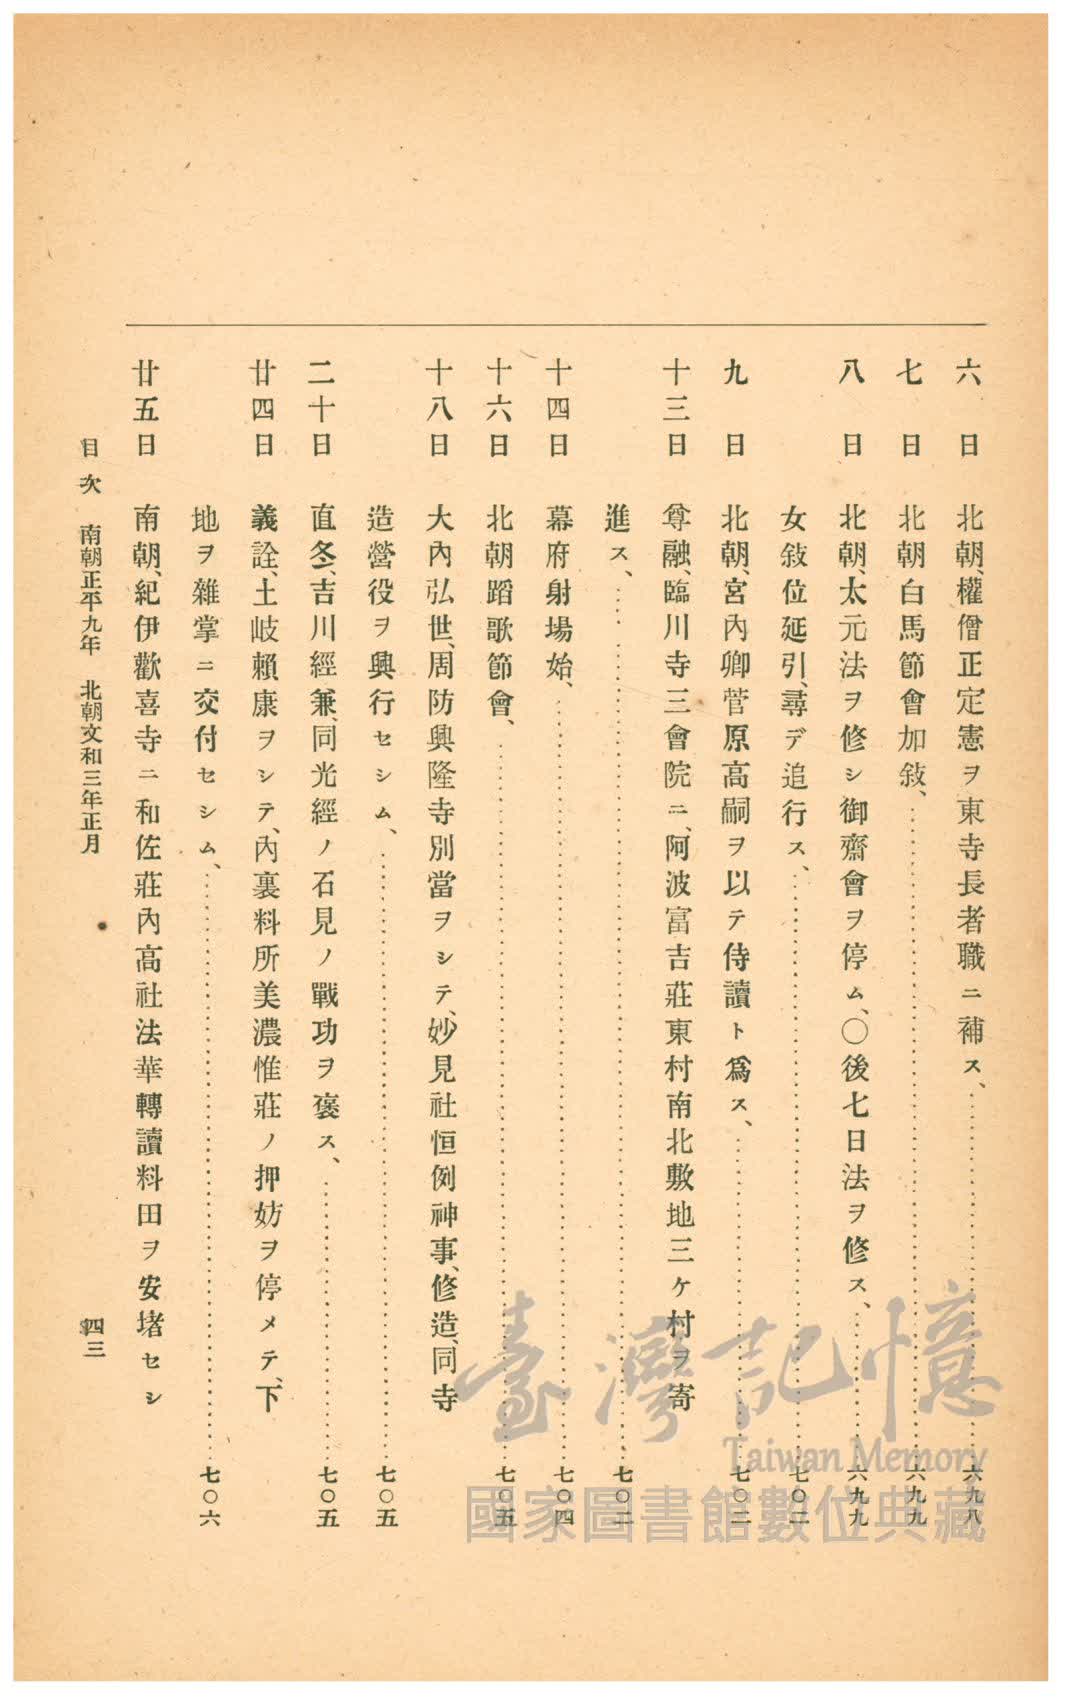 六日 北朝、權僧正定憲ヲ東寺長者職ニ補ス、…六九八
七日 北朝白馬節會加敍、…六九九
八日 北朝、太元法ヲ修シ御齋會ヲ停ム、〇後七日法ヲ修ス、…六九九
女敍位延引、尋デ追行ス、…七〇二
九日 北朝、宮內卿菅原高嗣ヲ以テ侍讀ト爲ス、…七〇二
十三日 尊融、臨川寺三會院ニ、阿波富吉莊東村南北敷地三ケ村ヲ寄
進ス、…七〇二
十四日 幕府射場始、…七〇四
十六日 北朝蹈歌節會、…七〇五
十八日 大內弘世、周防興隆寺別當ヲシテ、妙見社恒例神事、修造、同寺
造營役ヲ興行セシム、…七〇五
二十日 直冬、吉川經兼、同光經ノ石見ノ戰功ヲ褒ス、…七〇五
廿四日 義詮、土岐賴康ヲシテ、內裏料所美濃惟莊ノ押妨ヲ停メテ、下
地ヲ雜掌ニ交付セシム、…七〇六
廿五日 南朝、紀伊歡喜寺ニ和佐莊內高社法華轉讀料田ヲ安堵セシ
目次 南朝正平九年 北朝文和三年正月 四三
臺灣記憶
Taiwan Memory
國家圖書館數位典藏